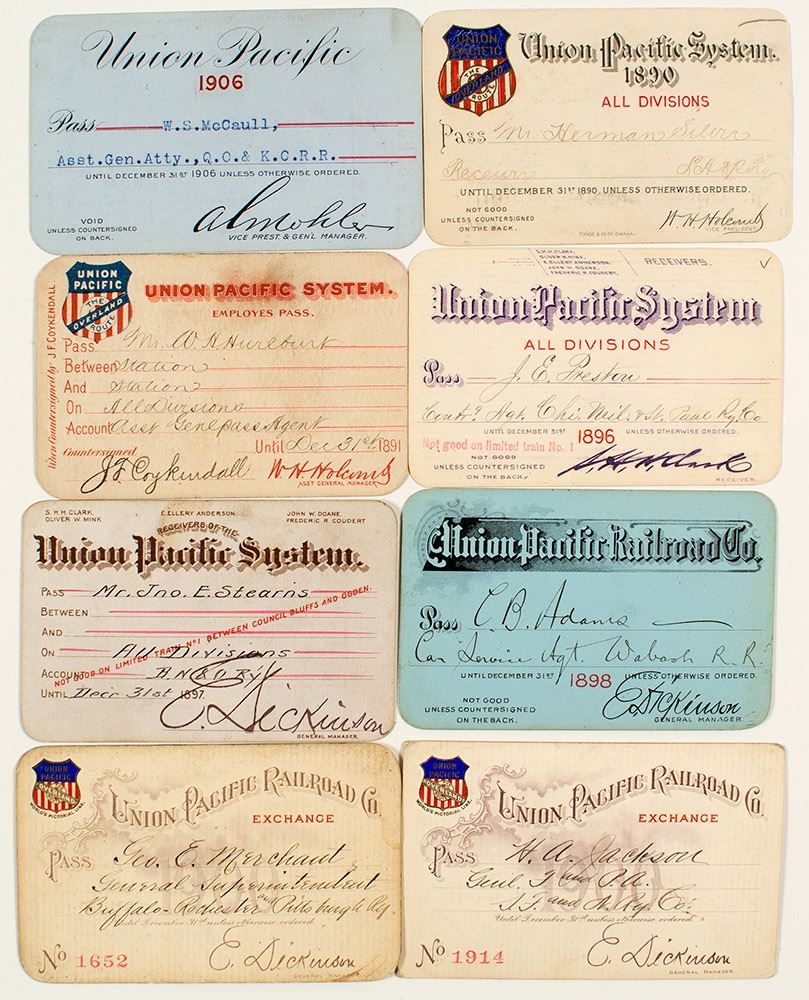 Union Pacific
1906
Pass W.S.McCaull,
Asst.Gen.Atty.,Q.O.& K.C.R.R.
UNTIL DECEMBER 31ST 1906 UNLESS OTHERWISE ORDERED.
VOID
UNLESS COUNTERSIGNED
ON BACK.
A L Mohler
VICE PREST. & GEN'L MANAGER.
UNION
PACIFIC
THE
OVERLAND
ROUTE
Union Pacific System.
1890
ALL DIVISIONS
Pass Mr. Herman Silver
Receiver
UNTIL DECEMBER 31ST 1890, UNLESS OTHERWISE ORDERED.
NOT GOOD
UNLESS COUNTERSIGNED
ON THE BACK.
W.H. Holcomb
VICE PRESIDENT
UNION
PACIFIC
THE
OVERLAND
ROUTE
UNION PACIFIC SYSTEM.
EMPLOYES PASS.
When Countersigned by J F COYKENDALL
Pass Mr. W. H. Hurlburt
Between Station
And Station
On All Divisions
Account Asst Genl Pass Agent
Until Dec 31st, 1891
Countersigned
J F Coykendall
W. H. Holcomb
ASST GENERAL MANAGER
S.H.H. CLARK,
OLIVER W. MINK,
E. ELLERY ANDERSON,
JOHN W. DOANE,
FREDERIC R. COUDERT,
RECEIVERS.
Union Pacific System
ALL DIVISIONS
Pass J. E. Preston
Agt. Chi. Mil. & St. Paul Ry. Co
UNTIL DECEMBER 31ST 1896 UNLESS OTHERWISE ORDERED.
Not good on limited train No. 1
NOT GOOD
UNLESS COUNTERSIGNED
ON THE BACK.
S. H. H. Clark
RECEIVER.
S. H. H. CLARK, E. ELLERY ANDERSON, JOHN W. DOANE,
OLIVER W. MINK FREDERIC R. COUDERT
RECEIVERS OF THE
Union Pacific System.
PASS Mr. Jno. E. Stearns
BETWEEN
AND
ON All Divisions
ACCOUNT
UNTIL Decr 31st 1897.
NOT GOOD ON LIMITED TRAIN No 1 BETWEEN COUNCIL BLUFFS AND OGDEN.
E. Dickinson
GENERAL MANAGER
Union Pacific Railroad Co.
Pass C. B. Adams
Car Service Agt. Wabash R. R.
UNTIL DECEMBER 31ST 1898 UNLESS OTHERWISE ORDERED.
NOT GOOD
UNLESS COUNTERSIGNED
ON THE BACK.
E. Dickinson
GENERAL MANAGER.
UNION
PACIFIC
WORLD'S PICTORIAL LINE.
UNION PACIFIC RAILROAD CO.
EXCHANGE
PASS Geo. E. Merchant
General Superintendent
Buffalo-Rochester and Pittsburgh Ry.
Until December 31st unless otherwise ordered.
No 1652
E. Dickinson
GENERAL MANAGER
UNION
PACIFIC
WORLD'S PICTORIAL LINE.
UNION PACIFIC RAILROAD CO.
EXCHANGE
PASS H. A. Jackson
Genl. F and P. A.
Until December 31st unless otherwise ordered.
No 1914
E. Dickinson
GENERAL MANAGER.